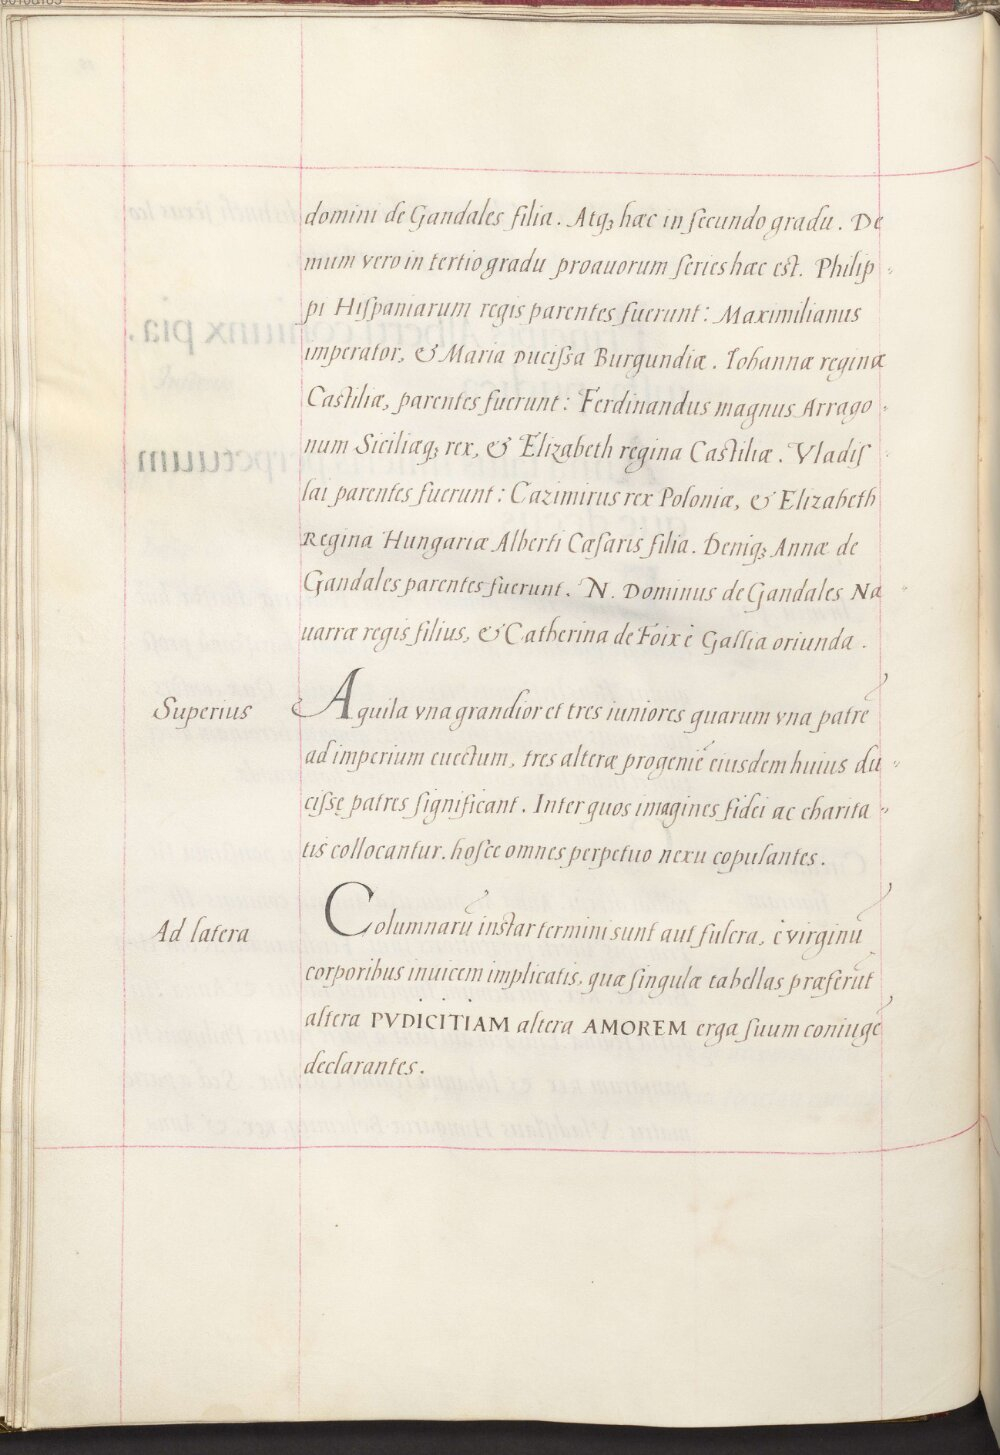 domini de Gandales filia. Atqꝫ hæc in ſecundo gradu. De
mum vero in tertio gradu proauorum ſeries hæc est. Philip-
pi Hiſpaniarum regis parentes fuerunt: Maximilianus
imperator, & Maria Duciſsa Burgundiæ. Iohannæ reginæ
Castiliæ, parentes fuerunt: Ferdinandus magnus Arrago-
num Siciliæqꝫ rex, & Elizabeth regina Castiliæ. Vladiſ-
lai parentes fuerunt: Cazimirus rex Poloniæ, & Elizabeth
Regina Hungariæ Alberti Cæſaris filia. Deniqꝫ Annæ de
Gandales parentes fuerunt. N. Dominus de Gandales Na-
uarræ regis filius, & Catherina de Foix è Gallia oriunda.
Superius
Aquila vna grandior et tres iuniores quarum vna patrē
ad imperium euectum, tres alteræ progeniē eiusdem huius du-
ciſsę patres ſignificant. Inter quos imagines fidei ac charita-
tis collocantur. hoſce omnes perpetuo nexu copulantes.
Ad latera
Columnarū instar termini sunt aut fulcra, è virginū
corporibus inuicem implicatis, quæ ſingulæ tabellas præferūt
altera PVDICITIAM altera AMOREM erga ſuum coniugē
declarantes.